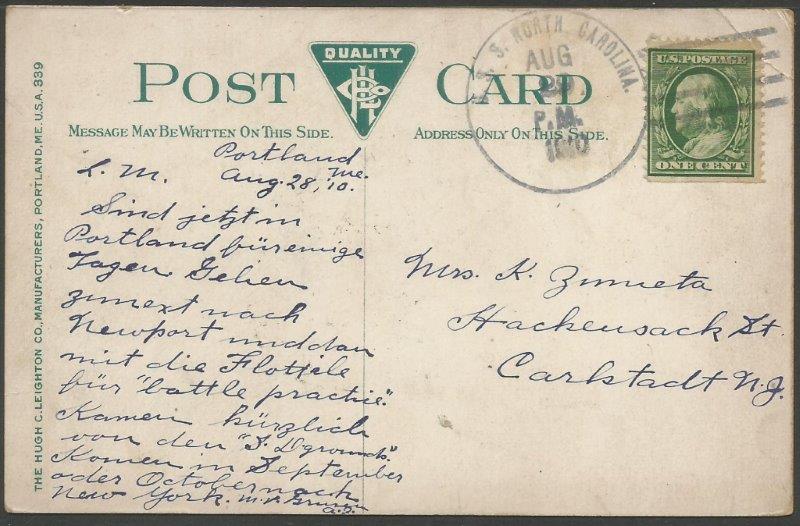 THE HUGH C. LEIGHTON CO., MANUFACTURERS, PORTLAND, ME. U.S.A. 339
POST CARD
QUALITY
MESSAGE MAY BE WRITTEN ON THIS SIDE.
ADDRESS ONLY ON THIS SIDE.
S. NORTH CAROLINA.
AUG
P.M.
1910
U.S. POSTAGE
ONE CENT
Portland Me.
L. M. Aug. 28, '10.
Sind jetzt in
Portland für einige
Tagen Gehen
zunext nach
Newport und dan
mit die Flottile
für "battle practise".
Kamen kürzlich
von den "S. D grounds."
Komen in September
oder October nach
New York. m.v. Gruss
a.S.
Mrs. K. Zumeta
Hackensack St.
Carlstadt N.J.